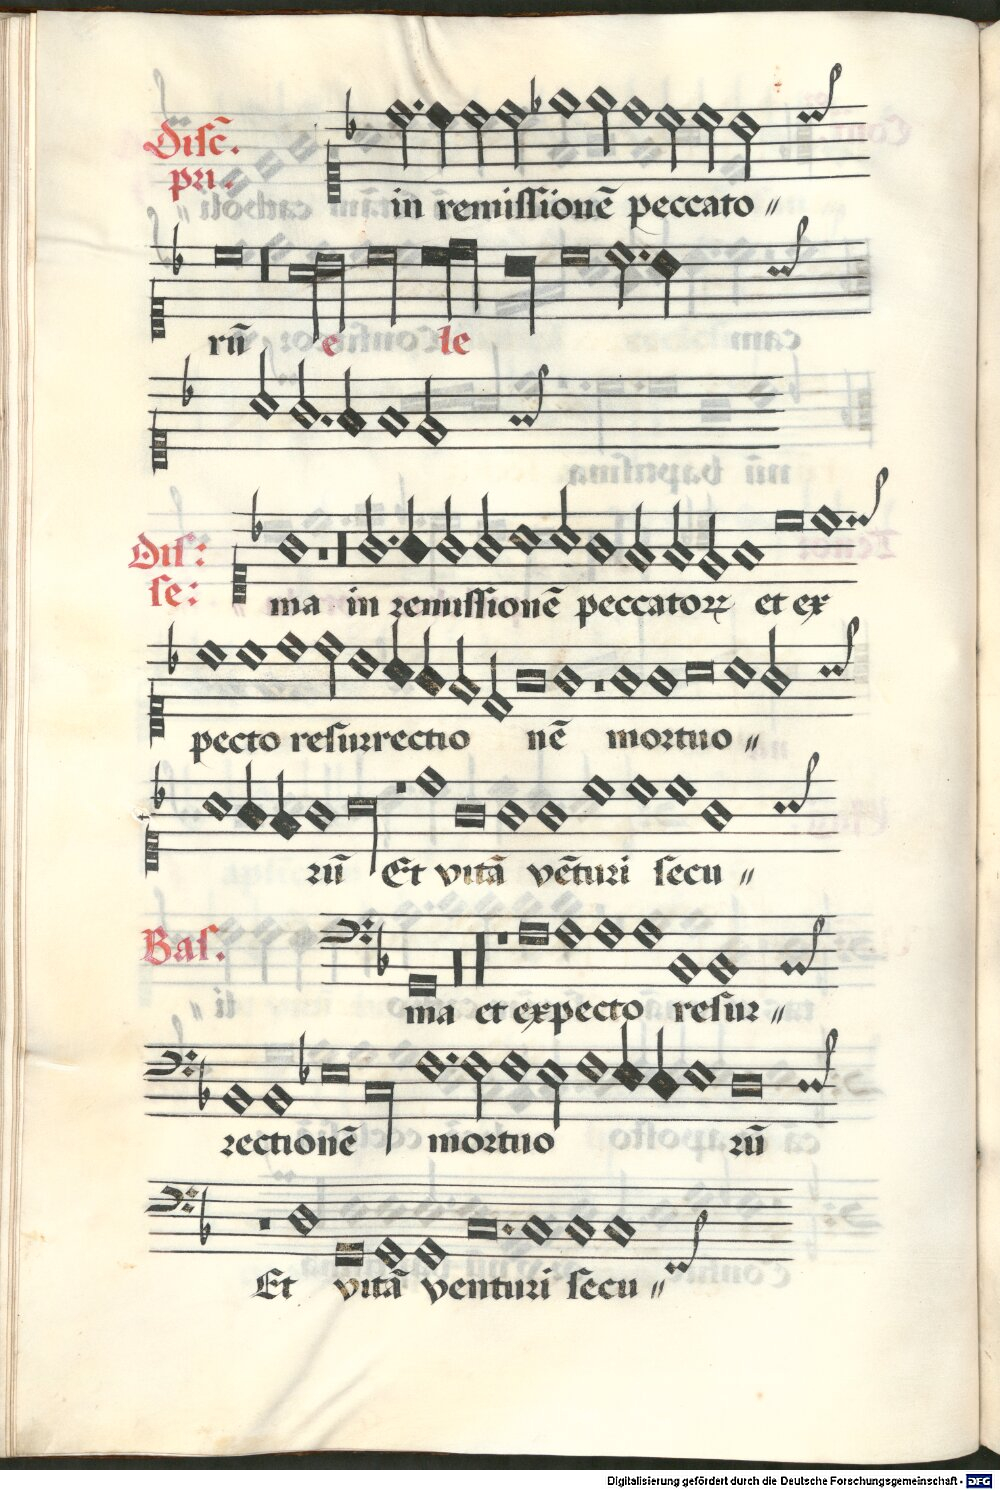 Disc̄.
pri.
in remissionē peccato //
rū e le
Dis:
se:
ma in remissionē peccatorꝝ et ex
pecto resurrectio nē mortuo //
rū Et vitā vēturi secu //
Bas.
ma et expecto resur //
rectionē mortuo rū
Et vitā venturi secu //
Digitalisierung gefördert durch die Deutsche Forschungsgemeinschaft - DFG